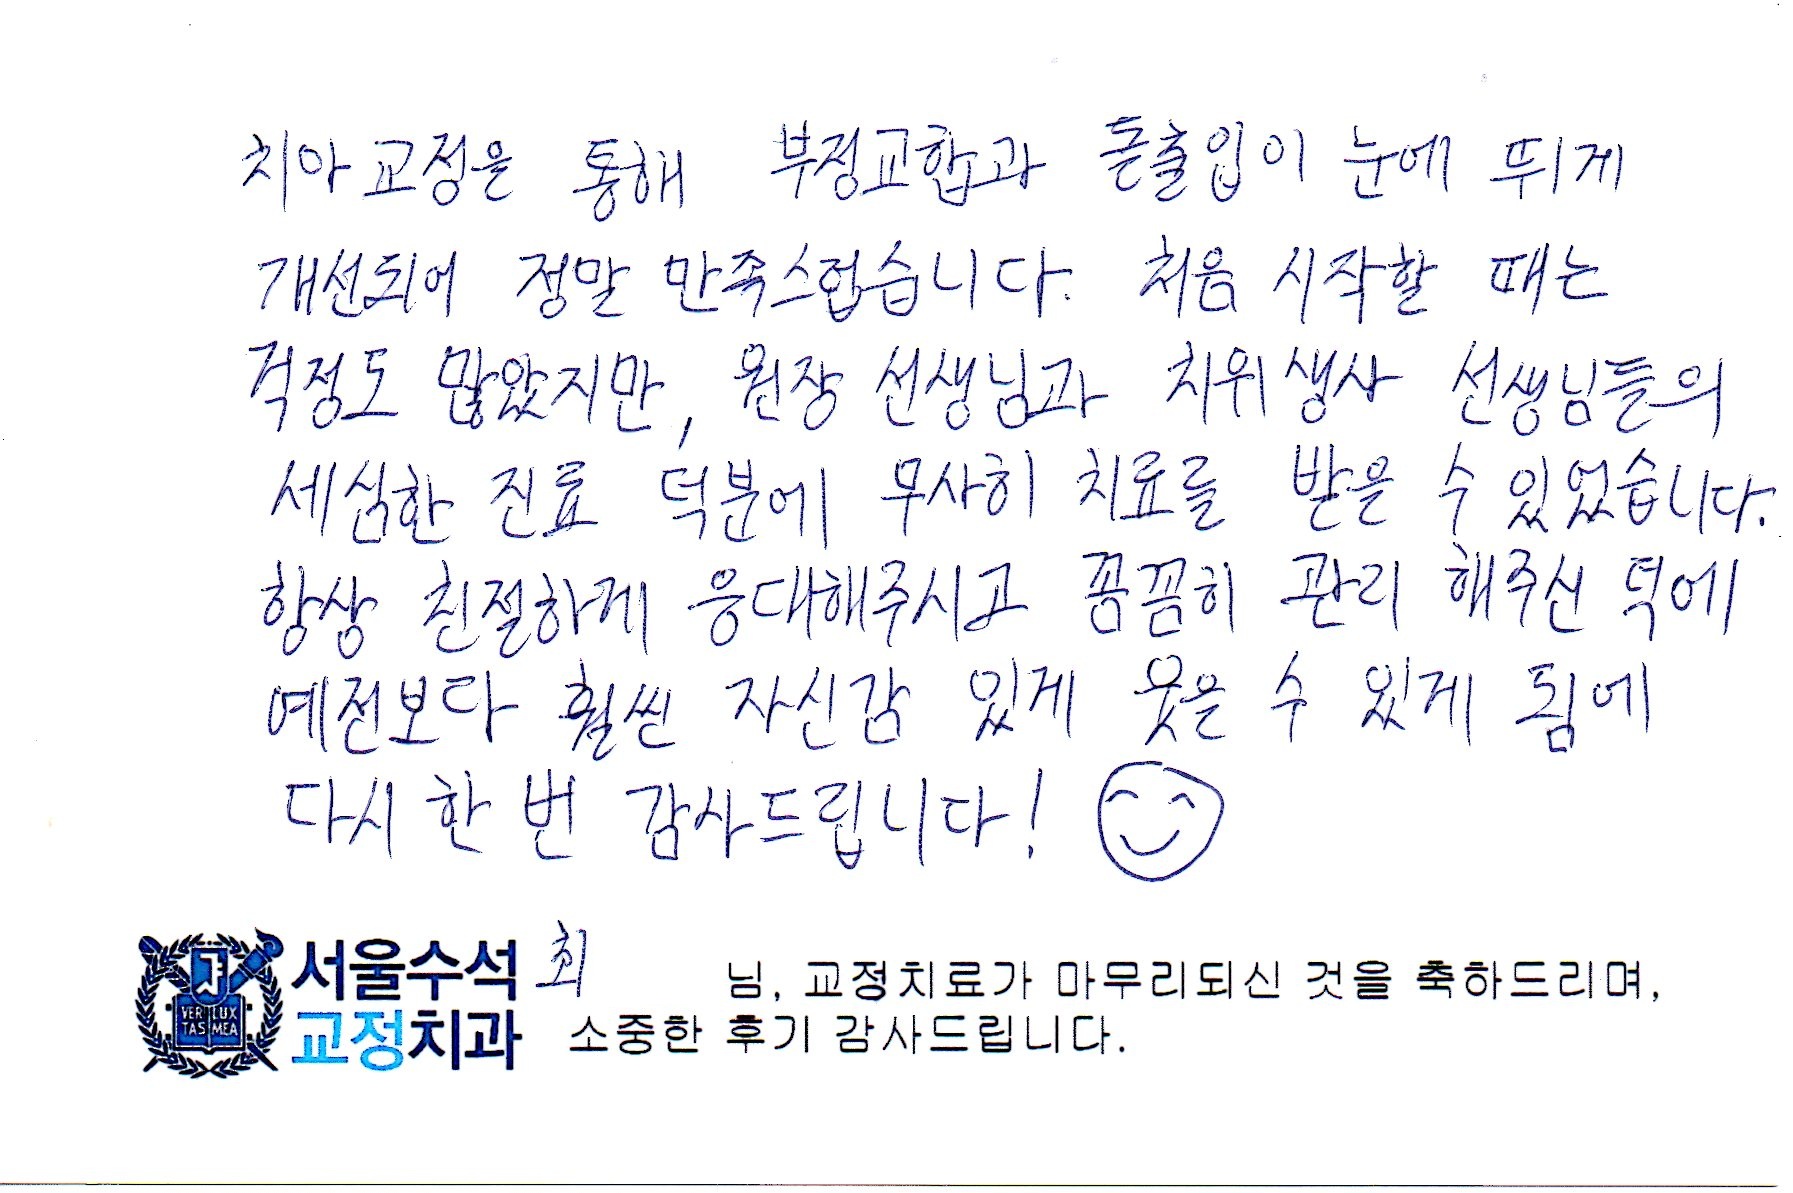 치아 교정을 통해 부정교합과 돌출입이 눈에 뛰게
개선되어 정말 만족스럽습니다. 처음 시작할 때는
걱정도 많았지만, 원장 선생님과 치위생사 선생님들의
세심한 진료 덕분에 무사히 치료를 받을 수 있었습니다.
항상 친절하게 응대해주시고 꼼꼼히 관리 해주신 덕에
예전보다 훨씬 자신감 있게 웃을 수 있게 됨에
다시 한 번 감사드립니다!
서울수석 최 님, 교정치료가 마무리되신 것을 축하드리며,
교정치과 소중한 후기 감사드립니다.
VERI LUX
TAS MEA